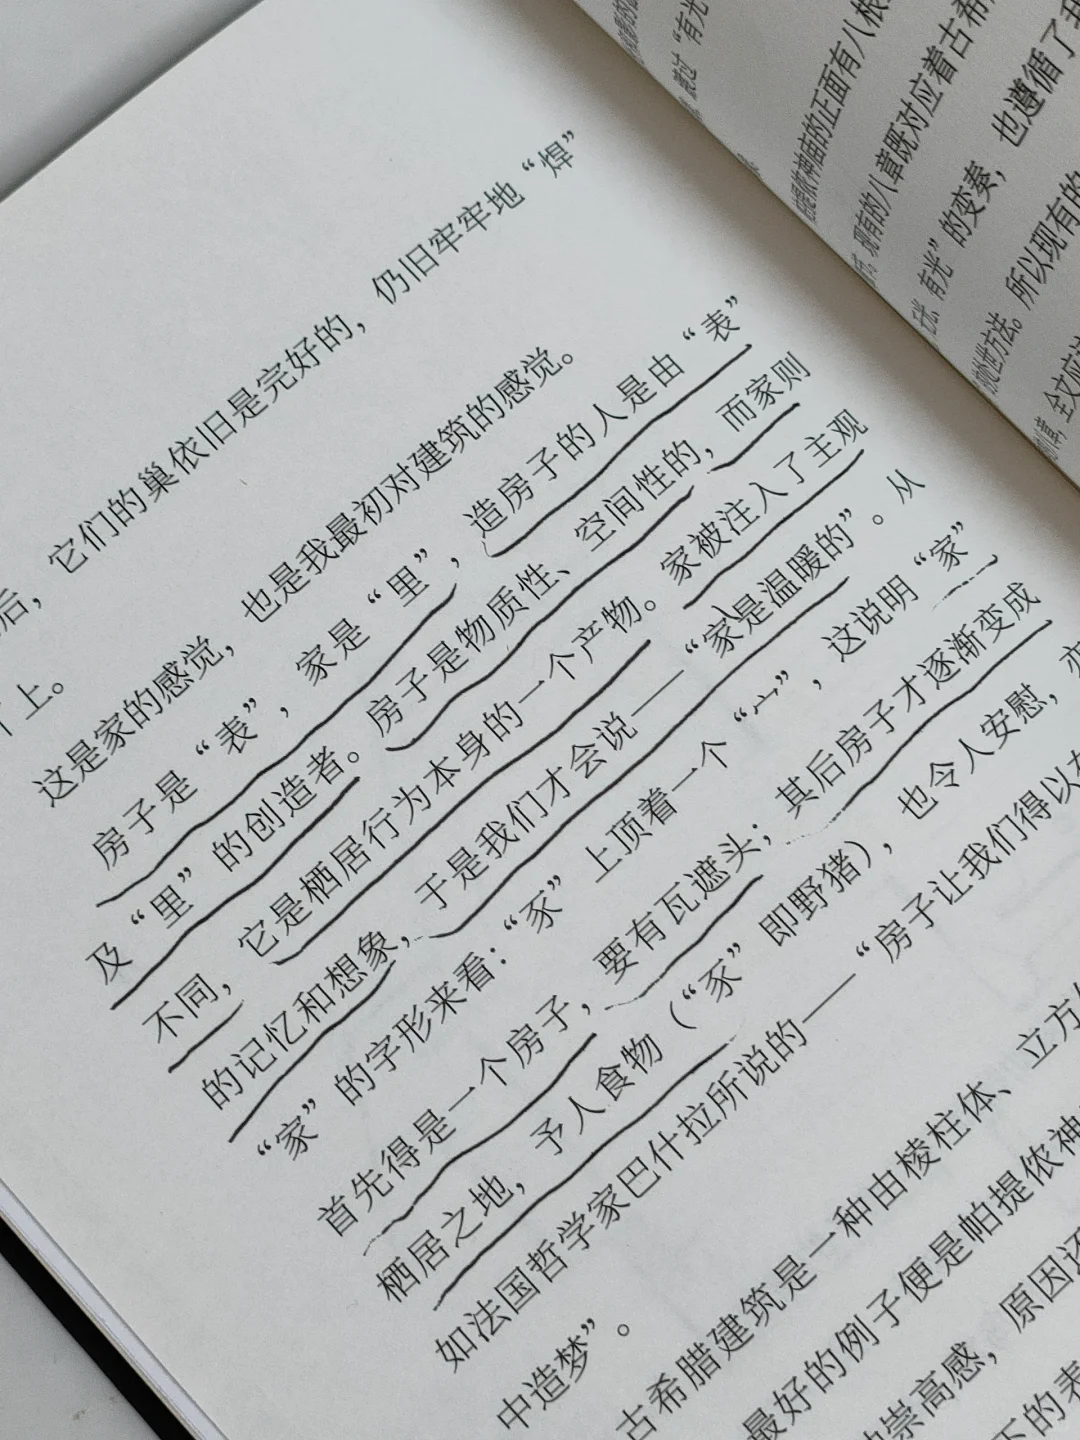 后，它们的巢依旧是完好的，仍旧牢牢地“焊”
上。
这是家的感觉，也是我最初对建筑的感觉。
房子是“表”，家是“里”，造房子的人是由“表”
及“里”的创造者。房子是物质性、空间性的，而家则
不同，它是栖居行为本身的一个产物。家被注入了主观
的记忆和想象，于是我们才会说——“家是温暖的”。从
“家”的字形来看：“豕”上顶着一个“宀”，这说明“家”
首先得是一个房子，要有瓦遮头；其后房子才逐渐变成
栖居之地，予人食物（“豕”即野猪），也令人安慰，
如法国哲学家巴什拉所说的——“房子让我们得以在
中造梦”。
古希腊建筑是一种由棱柱体、立方
最好的例子便是帕提侬神
崇高感，原因还
下的表
透过“有光
帕提侬神庙的正面有八根
现有的八章既对应着古希
有光”的变奏，也遵循了
方法。所以现有的
全文应